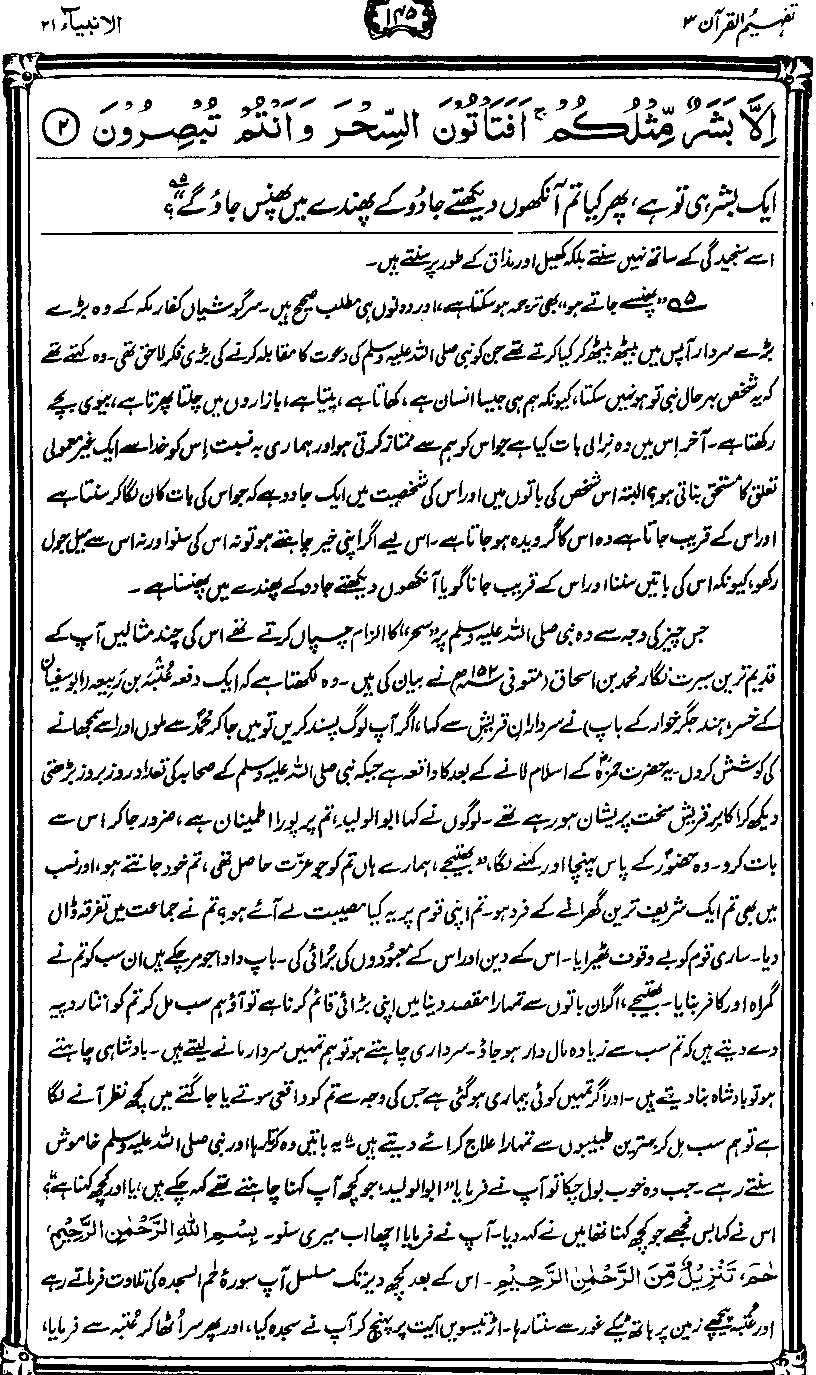 تفہیم القرآن ۳
۱۴۵
الانبیاء ۲۱
اِلَّا بَشَرٌ مِّثْلُكُمْ ۚ اَفَتَاْتُوْنَ السِّحْرَ وَاَنْتُمْ تُبْصِرُوْنَ ۝۳
ایک بشر ہی تو ہے، پھر کیا تم آنکھوں دیکھتے جادُو کے پھندے میں پھنس جاؤ گے"؟
اسے سنجیدگی کے ساتھ نہیں سنتے بلکہ کھیل اور مذاق کے طور پر سنتے ہیں۔
۵ "پھنسے جاتے ہو" بھی ترجمہ ہو سکتا ہے، اور دونوں ہی مطلب صحیح ہیں۔ سرگوشیاں کفار مکہ کے وہ بڑے
بڑے سردار آپس میں بیٹھ بیٹھ کر کیا کرتے تھے جن کو نبی صلی اللہ علیہ وسلم کی دعوت کا مقابلہ کرنے کی بڑی فکر لاحق تھی۔ وہ کہتے تھے
کہ یہ شخص بہر حال نبی تو ہو نہیں سکتا، کیونکہ ہم ہی جیسا انسان ہے، کھاتا ہے، پیتا ہے، بازاروں میں چلتا پھرتا ہے، بیوی بچے
رکھتا ہے۔ آخر اس میں وہ نرالی بات کیا ہے جو اس کو ہم سے ممتاز کرتی ہو اور ہماری بہ نسبت اِس کو خدا سے ایک غیر معمولی
تعلق کا مستحق بناتی ہو؟ البتہ اس شخص کی باتوں میں اور اس کی شخصیت میں ایک جادو ہے کہ جو اس کی بات کان لگا کر سنتا ہے
اور اس کے قریب جاتا ہے وہ اس کا گرویدہ ہو جاتا ہے۔ اس لیے اگر اپنی خیر چاہتے ہو تو نہ اس کی سنو اور نہ اس سے میل جول
رکھو، کیونکہ اس کی باتیں سننا اور اس کے قریب جانا گویا آنکھوں دیکھتے جادو کے پھندے میں پھنسنا ہے۔
جس چیز کی وجہ سے وہ نبی صلی اللہ علیہ وسلم پر "سحر" کا الزام چسپاں کرتے تھے اس کی چند مثالیں آپ کے
قدیم ترین سیرت نگار محمد بن اسحاق (متوفی ۱۵۲ھ) نے بیان کی ہیں۔ وہ لکھتا ہے کہ ایک دفعہ عُتبہ بن ربیعہ (ابوسفیان
کے خسر، ہند جگر خوار کے باپ) نے سردارانِ قریش سے کہا، اگر آپ لوگ پسند کریں تو میں جا کر محمدؐ سے ملوں اور اسے سمجھانے
کی کوشش کروں۔ یہ حضرت حمزہؓ کے اسلام لانے کے بعد کا واقعہ ہے جبکہ نبی صلی اللہ علیہ وسلم کے صحابہ کی تعداد روز بروز بڑھتی
دیکھ کر اکابرِ قریش سخت پریشان ہو رہے تھے۔ لوگوں نے کہا ابوالولید، تم پر پورا اطمینان ہے، ضرور جا کر اس سے
بات کرو۔ وہ حضورؐ کے پاس پہنچا اور کہنے لگا، "بھتیجے، ہمارے ہاں تم کو جو عزت حاصل تھی، تم خود جانتے ہو، اور نسب
میں بھی تم ایک شریف ترین گھرانے کے فرد ہو۔ تم اپنی قوم پر یہ کیا مصیبت لے آئے ہو؟ تم نے جماعت میں تفرقہ ڈال
دیا۔ ساری قوم کو بے وقوف ٹھیرایا۔ اس کے دین اور اس کے معبودوں کی بُرائی کی۔ باپ دادا جو مر چکے ہیں ان سب کو تم نے
گمراہ اور کافر بنایا۔ بھتیجے، اگر ان باتوں سے تمہارا مقصد دنیا میں اپنی بڑائی قائم کرنا ہے تو آؤ ہم سب مل کر تم کو اتنا روپیہ
دے دیتے ہیں کہ تم سب سے زیادہ مال دار ہو جاؤ۔ سرداری چاہتے ہو تو ہم تمہیں سردار مانے لیتے ہیں۔ بادشاہی چاہتے
ہو تو بادشاہ بنا دیتے ہیں۔ اور اگر تمہیں کوئی بیماری ہو گئی ہے جس کی وجہ سے تم کو واقعی سوتے یا جاگتے میں کچھ نظر آنے لگا
ہے تو ہم سب مل کر بہترین طبیبوں سے تمہارا علاج کرائے دیتے ہیں"۔ یہ باتیں وہ کرتا رہا اور نبی صلی اللہ علیہ وسلم خاموش
سنتے رہے۔ جب وہ خوب بول چکا تو آپ نے فرمایا "ابوالولید، جو کچھ آپ کہنا چاہتے تھے کہہ چکے ہیں، یا اور کچھ کہنا ہے"؟
اس نے کہا بس مجھے جو کچھ کہنا تھا میں نے کہہ دیا۔ آپ نے فرمایا اچھا اب میری سنو۔ بِسْمِ اللّٰهِ الرَّحْمٰنِ الرَّحِيْمِ،
حٰمٓ، تَنْزِيْلٌ مِّنَ الرَّحْمٰنِ الرَّحِيْمِ۔ اس کے بعد کچھ دیر تک مسلسل آپ سورۂ حٰم السجدہ کی تلاوت فرماتے رہے
اور عُتبہ پیچھے زمین پر ہاتھ ٹیکے غور سے سنتا رہا۔ اڑتیسویں آیت پر پہنچ کر آپ نے سجدہ کیا، اور پھر سر اُٹھا کر عُتبہ سے فرمایا،